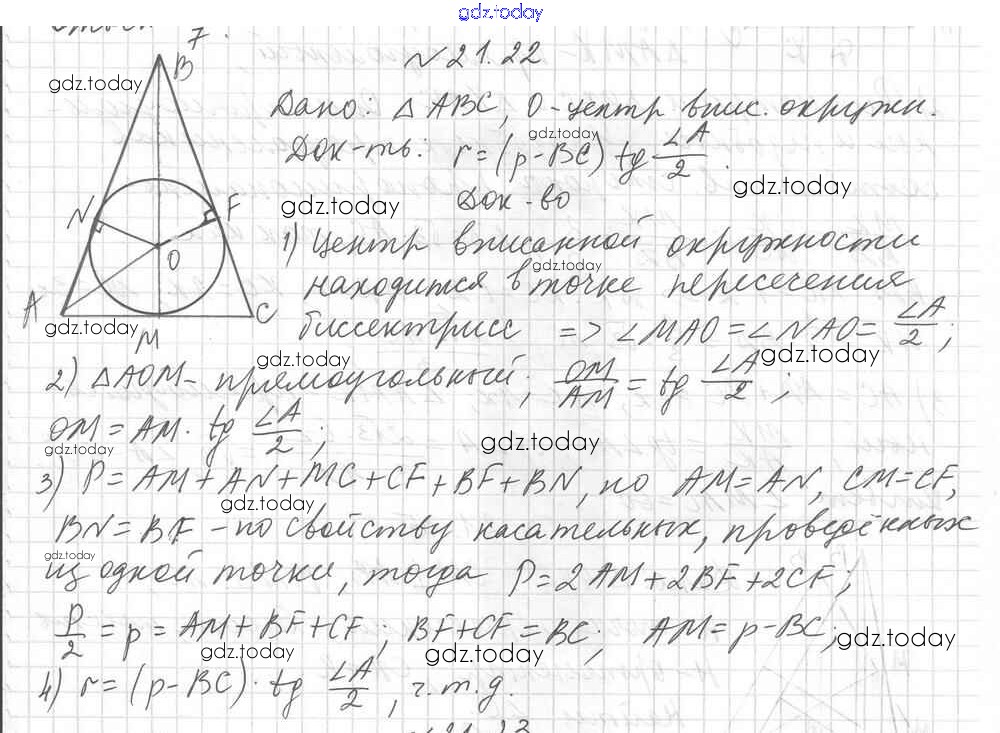 gdz.today
7.
№ 21.22
B
gdz.today
Дано: △ ABC, O - центр впис. окружн.
gdz.today
Док-ть: r = (p - BC) tg ∠A/2.
gdz.today
N F gdz.today Док-во
1) Центр вписанной окружности
O gdz.today
находится в точке пересечения
A C
gdz.today M биссектрисс => ∠MAO = ∠NAO = ∠A/2;
gdz.today gdz.today
2) △AOM - прямоугольный; OM/AM = tg ∠A/2;
OM = AM · tg ∠A/2;
gdz.today gdz.today
3) P = AM + AN + MC + CF + BF + BN, но AM = AN, CM = CF,
gdz.today
BN = BF - по свойству касательных, проведённых
gdz.today
из одной точки, тогда P = 2AM + 2BF + 2CF;
P/2 = p = AM + BF + CF; BF + CF = BC; AM = p - BC;
gdz.today gdz.today gdz.today
4) r = (p - BC) · tg ∠A/2, ч.т.д.